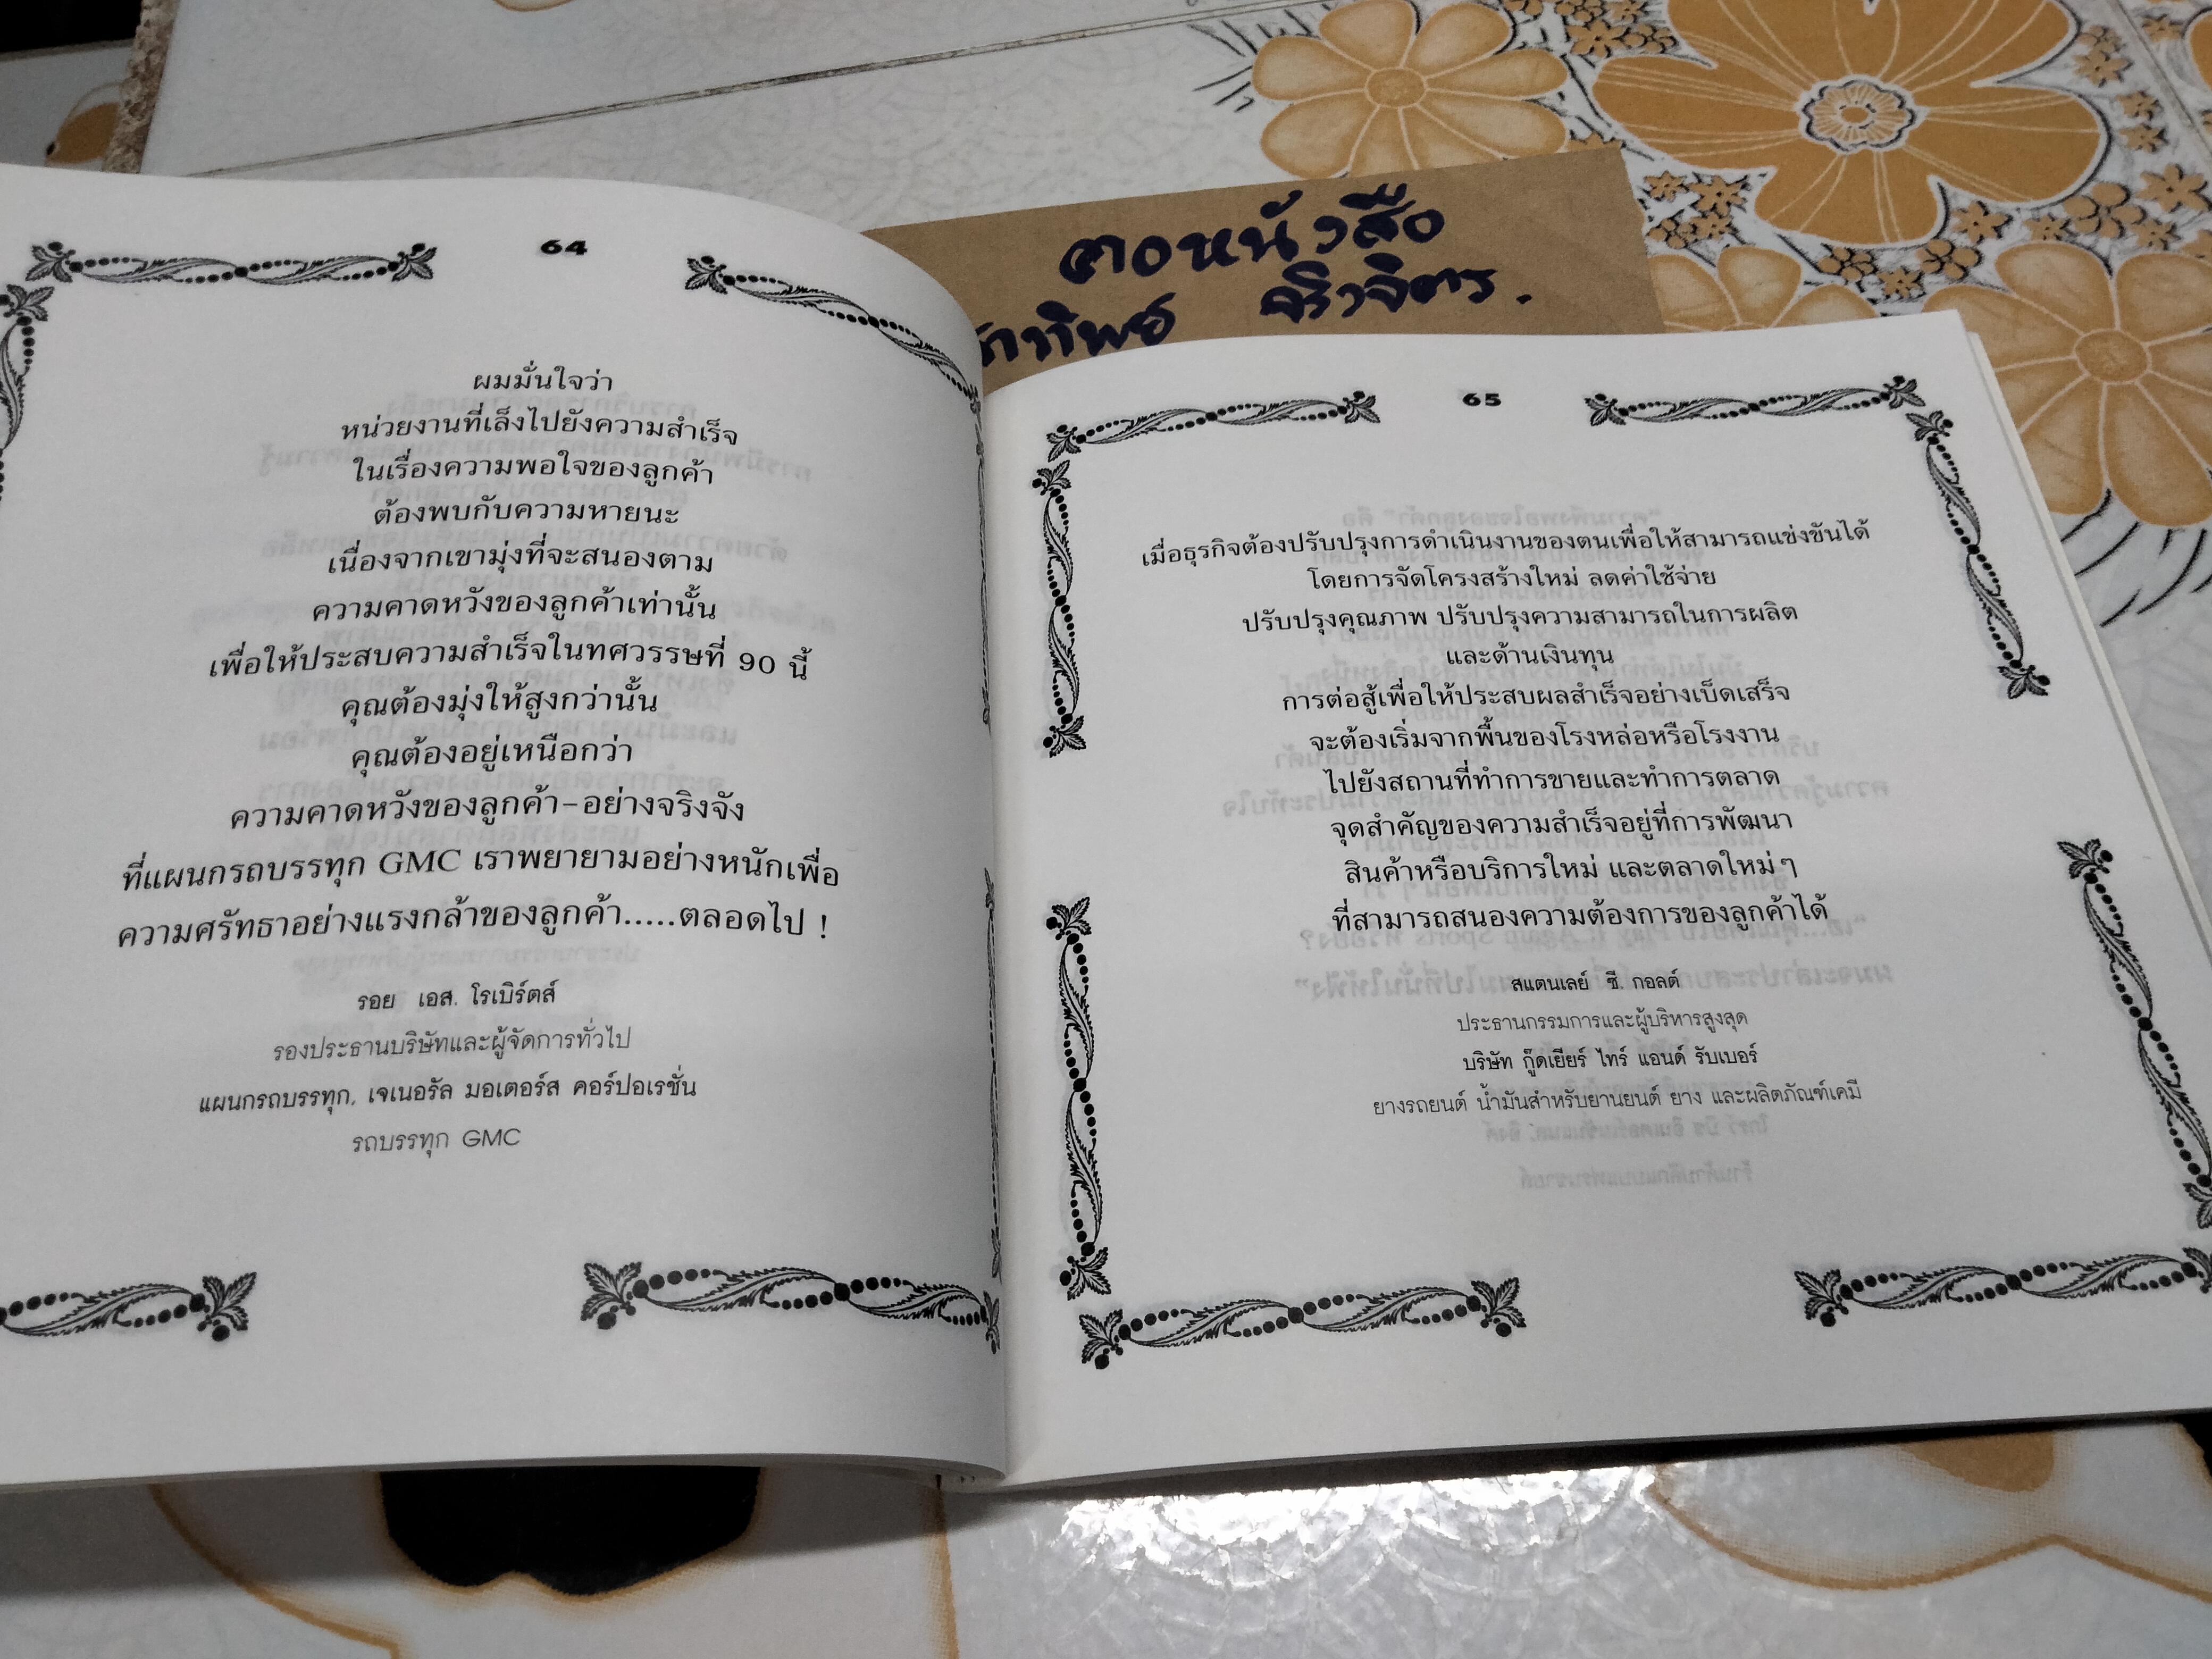 คอหนังสือ
จริงจิตร.
64
ผมมั่นใจว่า
หน่วยงานที่เล็งไปยังความสำเร็จ
ในเรื่องความพอใจของลูกค้า
ต้องพบกับความหายนะ
เนื่องจากเขามุ่งที่จะสนองตาม
ความคาดหวังของลูกค้าเท่านั้น
เพื่อให้ประสบความสำเร็จในทศวรรษที่ 90 นี้
คุณต้องมุ่งให้สูงกว่านั้น
คุณต้องอยู่เหนือกว่า
ความคาดหวังของลูกค้า-อย่างจริงจัง
ที่แผนกรถบรรทุก GMC เราพยายามอย่างหนักเพื่อ
ความศรัทธาอย่างแรงกล้าของลูกค้า.....ตลอดไป !
รอย เอส. โรเบิร์ตส์
รองประธานบริษัทและผู้จัดการทั่วไป
แผนกรถบรรทุก, เจเนอรัล มอเตอร์ส คอร์ปอเรชั่น
รถบรรทุก GMC
65
เมื่อธุรกิจต้องปรับปรุงการดำเนินงานของตนเพื่อให้สามารถแข่งขันได้
โดยการจัดโครงสร้างใหม่ ลดค่าใช้จ่าย
ปรับปรุงคุณภาพ ปรับปรุงความสามารถในการผลิต
และด้านเงินทุน
การต่อสู้เพื่อให้ประสบผลสำเร็จอย่างเบ็ดเสร็จ
จะต้องเริ่มจากพื้นของโรงหล่อหรือโรงงาน
ไปยังสถานที่ทำการขายและทำการตลาด
จุดสำคัญของความสำเร็จอยู่ที่การพัฒนา
สินค้าหรือบริการใหม่ และตลาดใหม่ๆ
ที่สามารถสนองความต้องการของลูกค้าได้
สแตนเลย์ ซี. กอลต์
ประธานกรรมการและผู้บริหารสูงสุด
บริษัท กู๊ดเยียร์ ไทร์ แอนด์ รับเบอร์
ยางรถยนต์ น้ำมันสำหรับยานยนต์ ยาง และผลิตภัณฑ์เคมี